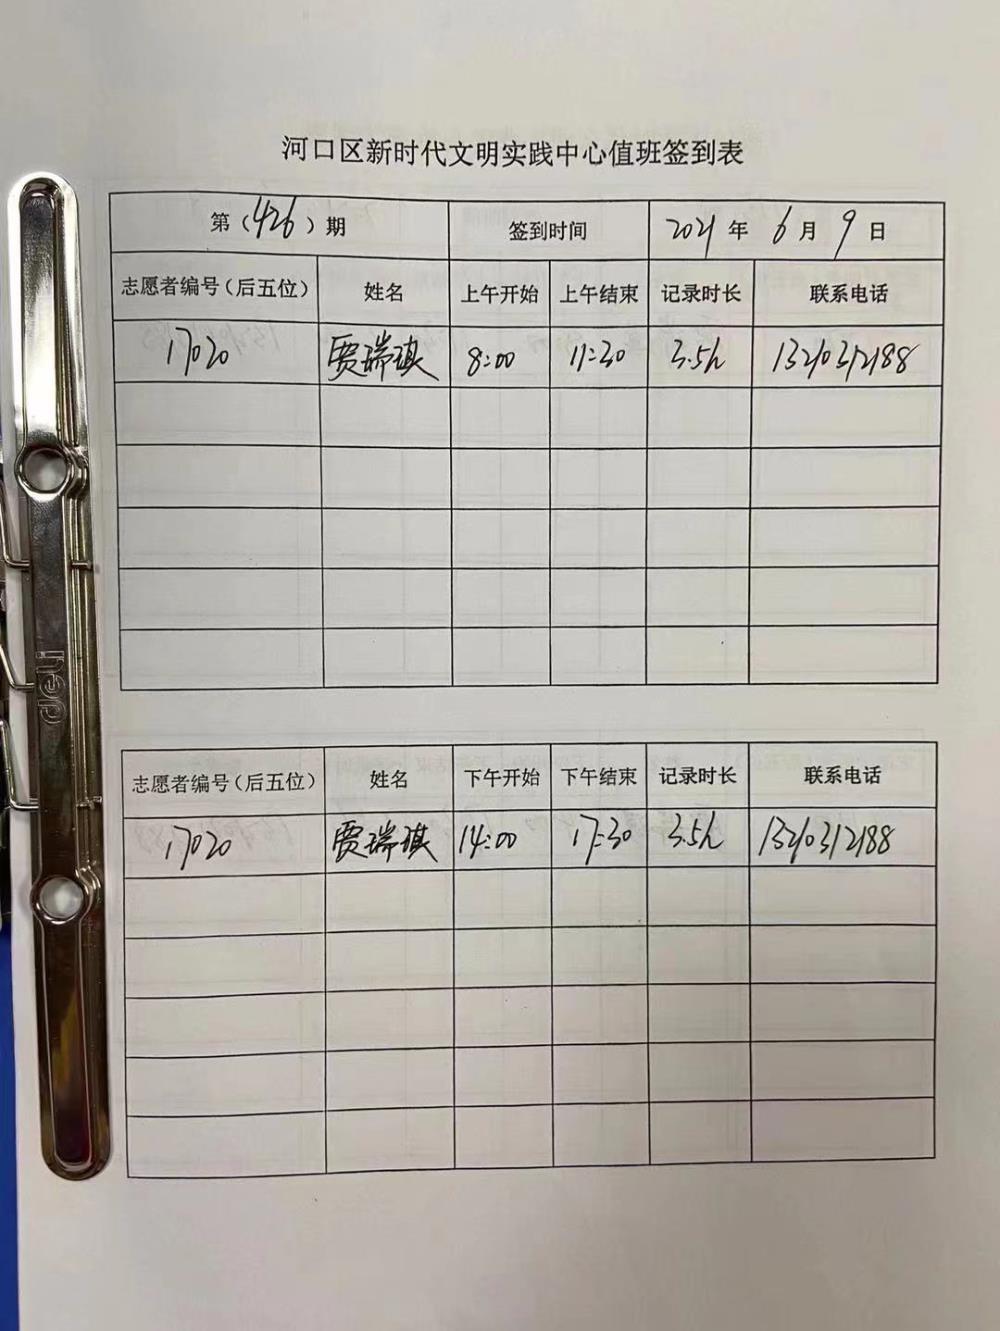 河口区新时代文明实践中心值班签到表
第（426）期 签到时间 2021 年 6 月 9 日
志愿者编号（后五位） 姓名 上午开始 上午结束 记录时长 联系电话
17020 贾瑞琪 8:00 11:30 3.5h 13210312188
志愿者编号（后五位） 姓名 下午开始 下午结束 记录时长 联系电话
17020 贾瑞琪 14:00 17:30 3.5h 13210312188